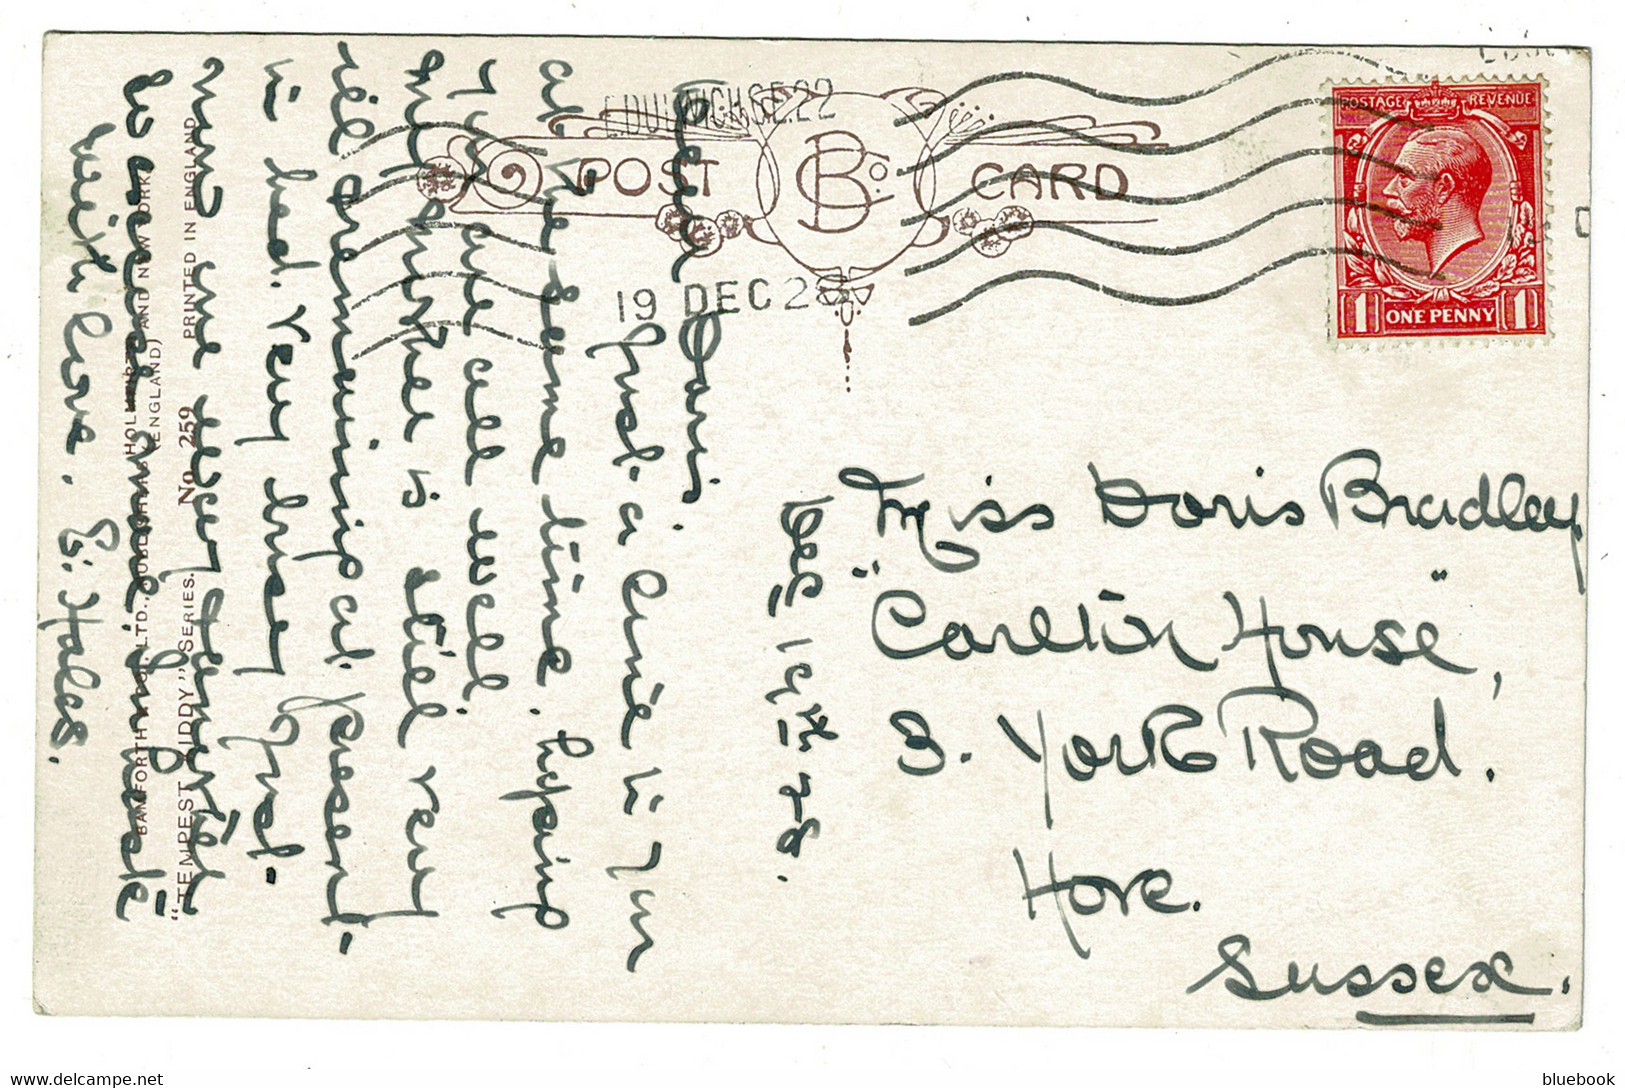 E.DULWICH S.E.22
19 DEC 28
POST CARD
B & Co.
POSTAGE REVENUE
1 ONE PENNY 1
Dec 19th 28.
Dear Doris.
Just a line to you
at the same time. hoping
you are all well.
my mother is still very
ill remaining at present
in bed. Very busy just
now one day
with love. E. Hales.
Miss Doris Bradley
"Carlton House",
3. York Road.
Hove.
Sussex.
"TEMPEST KIDDY" SERIES. No. 259 PRINTED IN ENGLAND
BAMFORTH & CO., LTD., PUBLISHERS, HOLMFIRTH (ENGLAND) AND NEW YORK
bluebook